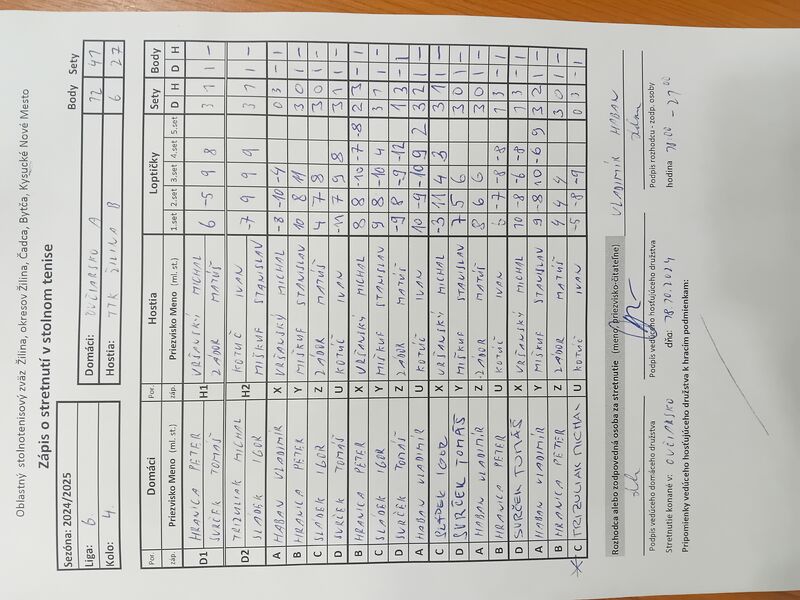 Oblastný stolnotenisový zväz Žilina, okresov Žilina, Čadca, Bytča, Kysucké Nové Mesto
Zápis o stretnutí v stolnom tenise
Sezóna: 2024/2025
Liga: 6.
Kolo: 4.
Body Sety
Domáci: OVČIARSKO A 12 41
Hostia: TTK ŽILINA B 6 27
Por. Domáci Por. Hostia Loptičky Sety Body
záp. Priezvisko Meno (ml. st.) záp. Priezvisko Meno (ml. st.) 1.set 2.set 3.set 4.set 5.set D H D H
D1 HRANICA PETER H1 VRŠANSKÝ MICHAL 6 -5 9 8 3 1 1 -
SURČEK TOMÁŠ ZÁDOR MATÚŠ
D2 TRIZULIAK MICHAL H2 KOTÚČ IVAN -7 9 9 9 3 1 1 -
SLÁDEK IGOR MIŠKUF STANISLAV
A HABAN VLADIMÍR X VRŠANSKÝ MICHAL -8 -10 -4 0 3 - 1
B HRANICA PETER Y MIŠKUF STANISLAV 10 8 11 3 0 1 -
C SLÁDEK IGOR Z ZÁDOR MATÚŠ 4 7 8 3 0 1 -
D SURČEK TOMÁŠ U KOTÚČ IVAN -11 7 9 8 3 1 1 -
B HRANICA PETER X VRŠANSKÝ MICHAL 8 8 -10 -7 -8 2 3 - 1
C SLÁDEK IGOR Y MIŠKUF STANISLAV 9 8 -10 4 3 1 1 -
D SURČEK TOMÁŠ Z ZÁDOR MATÚŠ -9 8 -9 -12 1 3 - 1
A HABAN VLADIMÍR U KOTÚČ IVAN 10 -9 -10 9 2 3 2 1 -
C SLÁDEK IGOR X VRŠANSKÝ MICHAL -3 11 4 3 3 1 1 -
D SURČEK TOMÁŠ Y MIŠKUF STANISLAV 7 5 6 3 0 1 -
A HABAN VLADIMÍR Z ZÁDOR MATÚŠ 8 6 6 3 0 1 -
B HRANICA PETER U KOTÚČ IVAN -7 -8 -8 1 3 - 1
D SURČEK TOMÁŠ X VRŠANSKÝ MICHAL 10 -8 -6 -8 1 3 - 1
A HABAN VLADIMÍR Y MIŠKUF STANISLAV 9 -8 10 -6 9 3 2 1 -
B HRANICA PETER Z ZÁDOR MATÚŠ 4 4 4 3 0 1 -
C TRIZULIAK MICHAL U KOTÚČ IVAN -5 -8 -9 0 3 - 1
Rozhodca alebo zodpovedná osoba za stretnutie (meno, priezvisko-čitateľne) VLADIMÍR HABAN
Podpis vedúceho domáceho družstva Podpis vedúceho hosťujúceho družstva Podpis rozhodcu - zodp. osoby
Stretnutie konané v: OVČIARSKO dňa: 18.10.2024 hodina 18.00 - 21.00
Pripomienky vedúceho hosťujúceho družstva k hracím podmienkam: